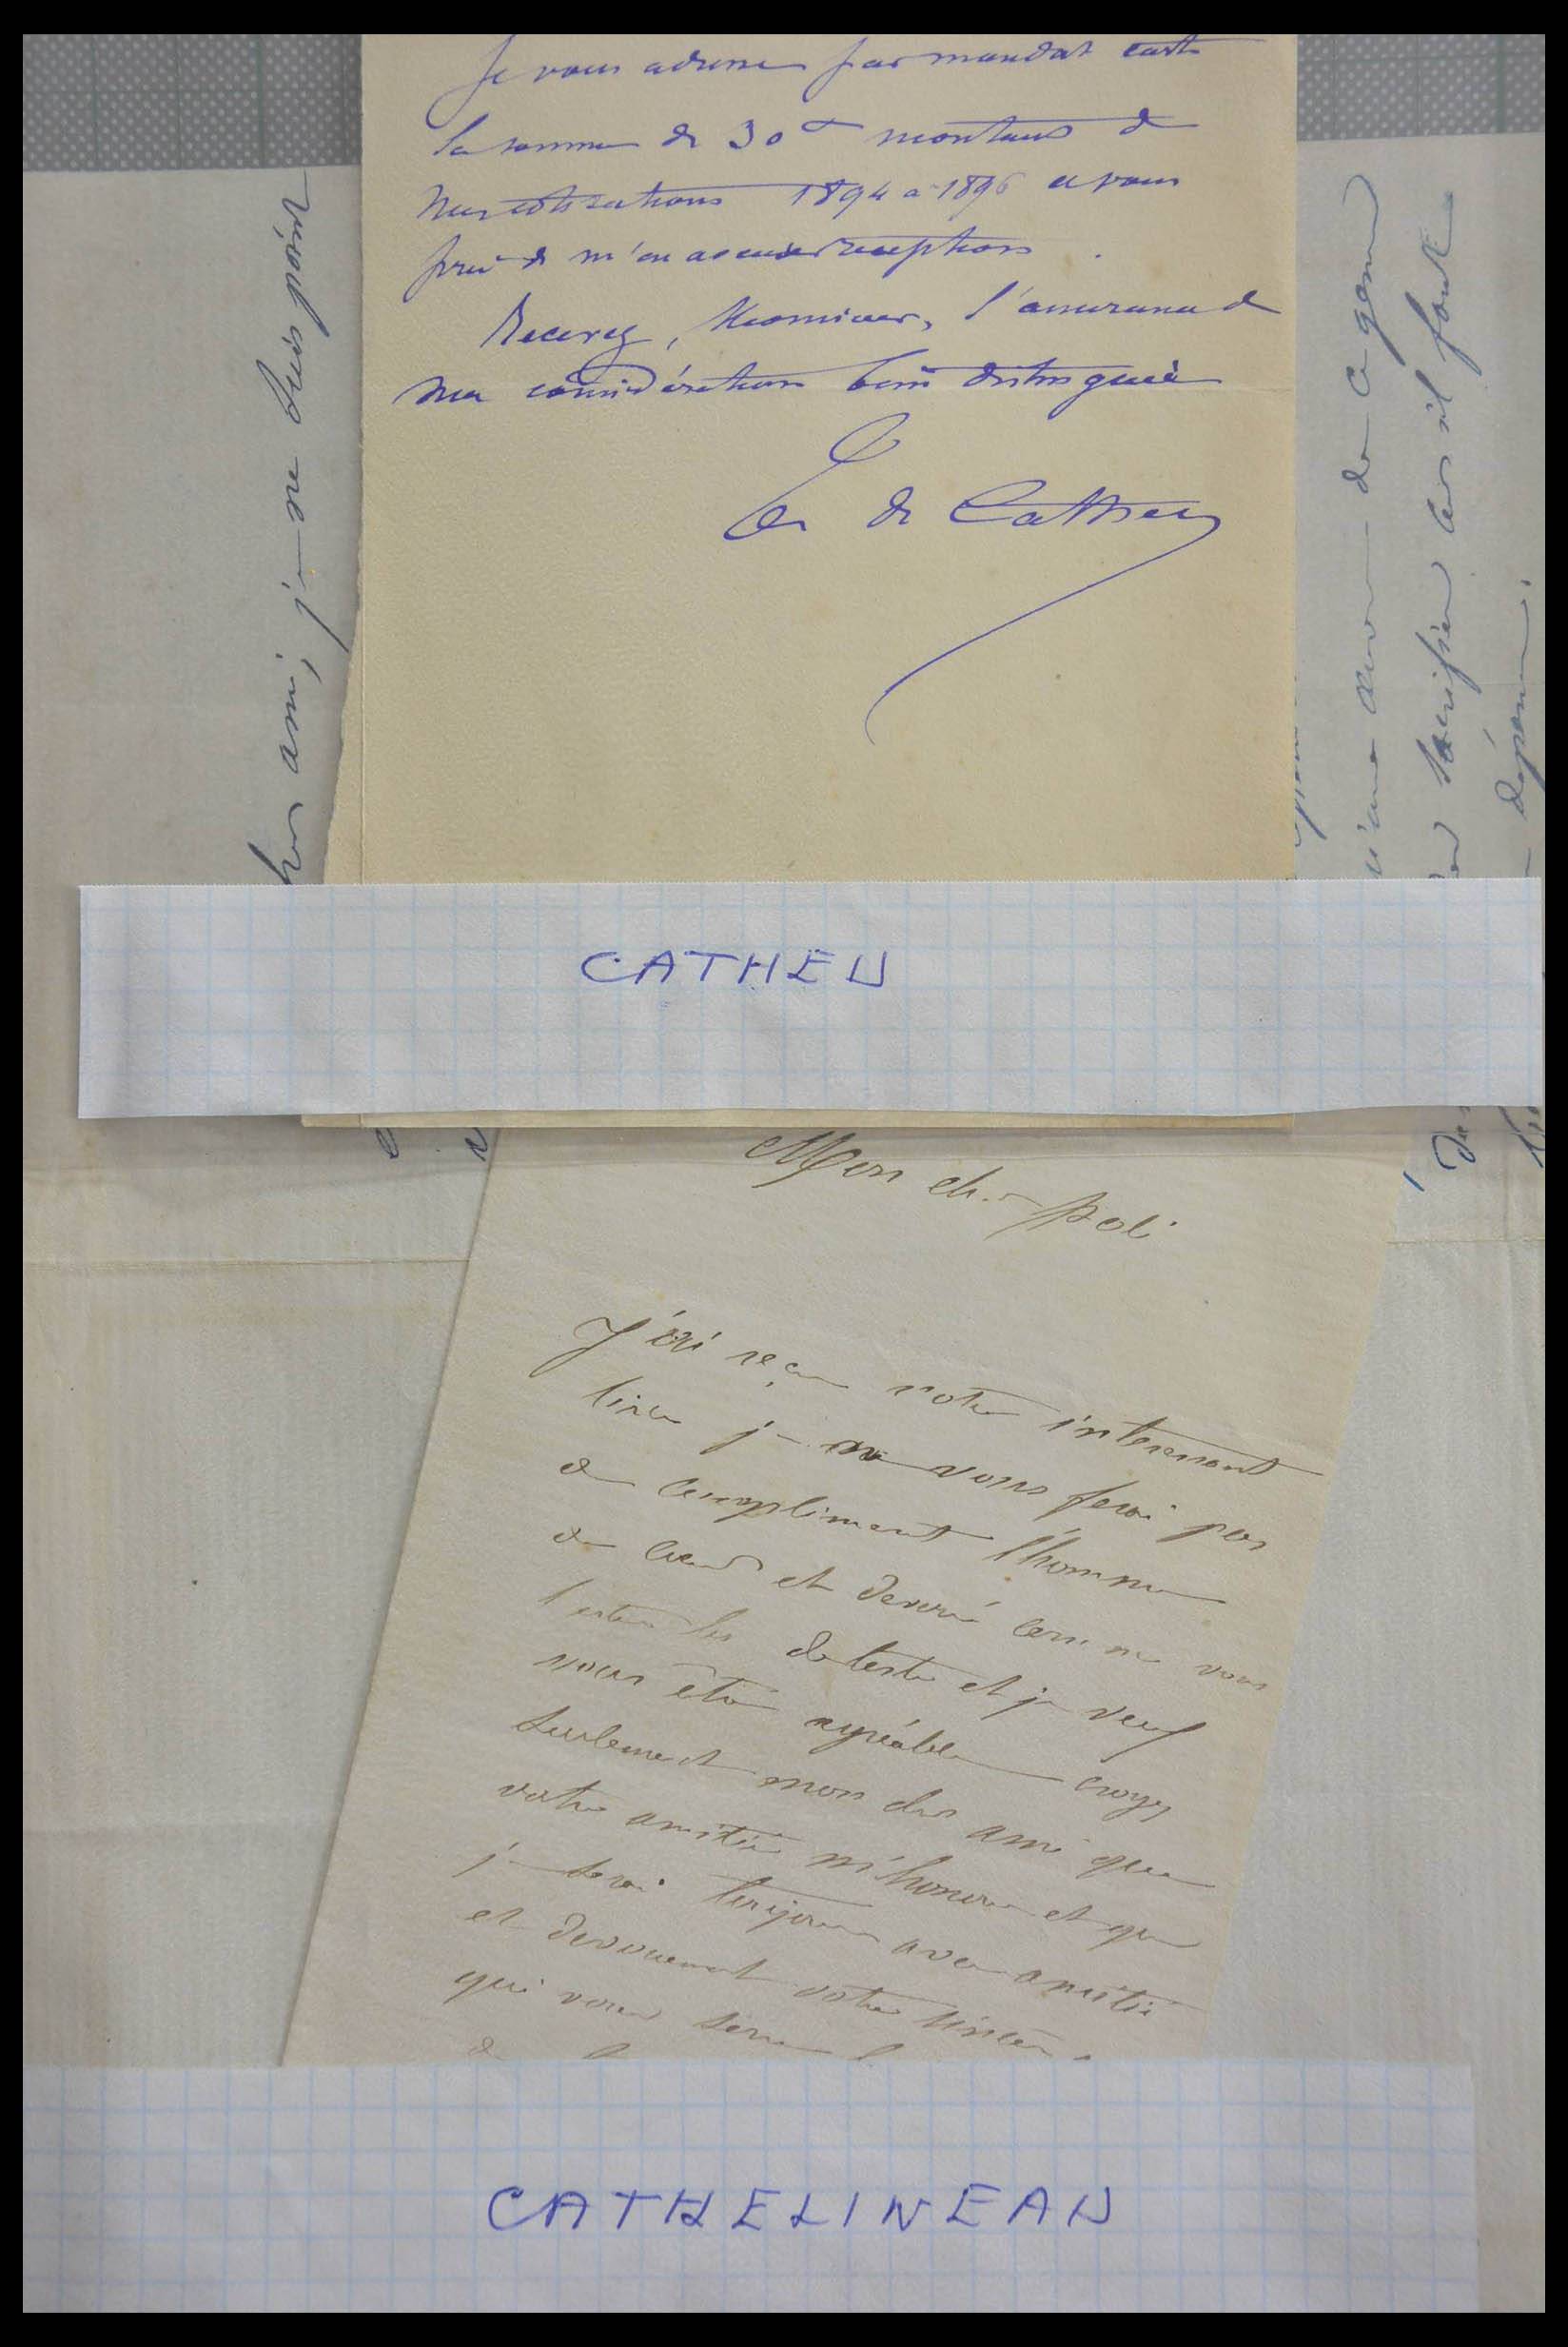 Je vous adresse par mandat carte
la somme de 30f montant de
mes cotisations 1894 a 1896 et vous
prie de m'en accuser reception.
Recevez, Monsieur, l'assurance de
ma considération bien distinguée
de Catheu
CATHEU
Mon cher Poli
J'ai reçu votre interessant
livre je ne vous ferai pas
de compliment l'homme
de coeur et devoué comme vous
l'êtes les deteste et je veux
vous être agréable croyez
seulement mon cher ami que
votre amitié m'honore et que
je serai toujours avec amitié
et devouement votre sincère
qui vous serre
CATHELINEAU
cher ami, je ne suis point
de ce genre
sacrifier car il faut